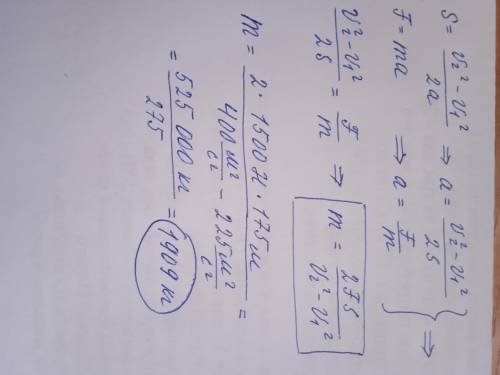 S = (v₂² - v₁²) / 2a ⇒ a = (v₂² - v₁²) / 2S
F = ma ⇒ a = F / m } ⇒
(v₂² - v₁²) / 2S = F / m ⇒ m = 2FS / (v₂² - v₁²)
m = (2 · 1500 Н · 175 м) / (400 м²/с² - 225 м²/с²) =
= 525 000 кг / 275 = 1909 кг